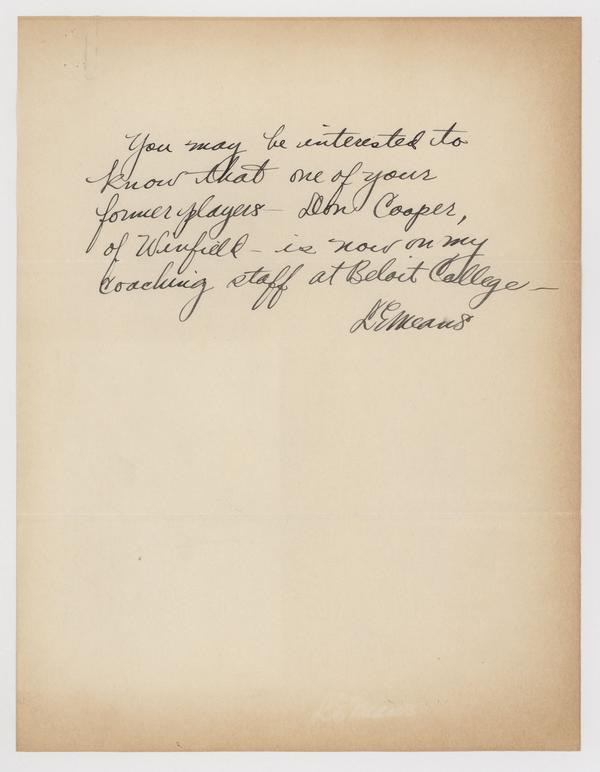 You may be interested to
know that one of your
former players – Don Cooper,
of Winfield – is now on my
coaching staff at Beloit College –
L E Means